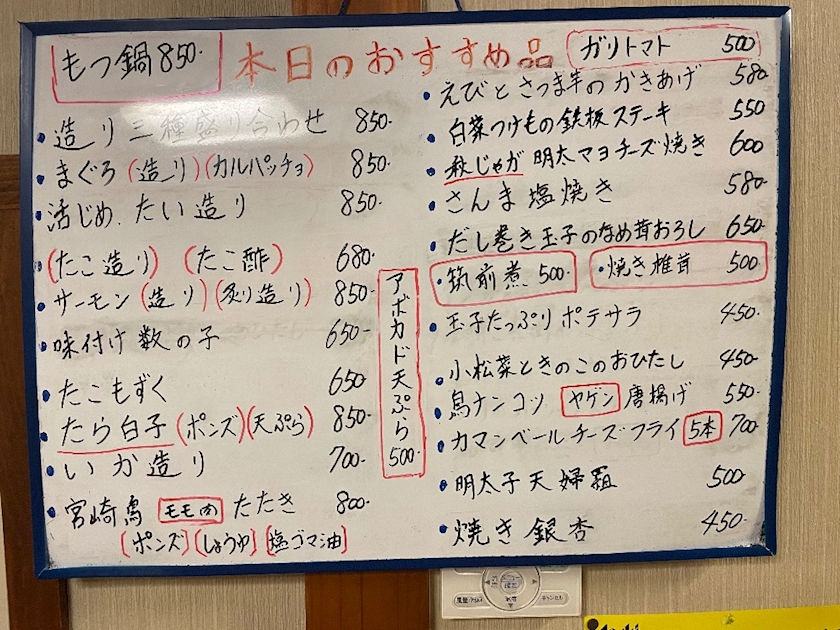 もつ鍋 850.
本日のおすすめ品
ガリトマト 500
・造り三種盛り合わせ 850.
・まぐろ(造り)(カルパッチョ) 850.
・活じめ.たい造り 850.
(たこ造り) (たこ酢) 680.
・サーモン(造り)(炙り造り) 850.
・味付け数の子 650-
・たこもずく 650
・たら白子(ポンズ)(天ぷら) 850.
・いか造り 700.
・宮崎鳥 モモ肉 たたき 800.
(ポンズ)(しょうゆ)(塩ゴマ油)
アボカド天ぷら 500.
・えびとさつま芋のかきあげ 580
・白菜つけもの鉄板ステーキ 550
・秋じゃが明太マヨチーズ焼き 600
・さんま塩焼き 580.
・だし巻き玉子のなめ茸おろし 650.
・筑前煮 500.
・焼き椎茸 500.
・玉子たっぷりポテサラ 450.
・小松菜ときのこのおひたし 450.
・鳥ナンコツ ヤゲン 唐揚げ 550.
・カマンベールチーズフライ 5本 700
・明太子天婦羅 500
・焼き銀杏 450.